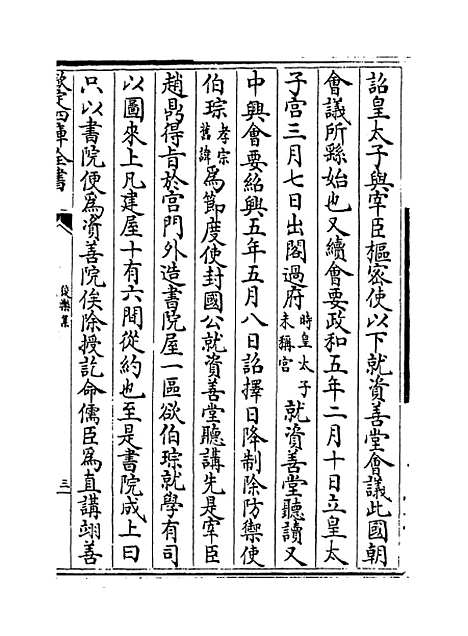 詔皇太子與宰臣樞密使以下就資善堂會議此國朝
會議所繇始也又續會要政和五年二月十日立皇太
子宮三月七日出閤過府時皇太子未稱宮就資善堂聽讀又
中興會要紹興五年五月八日詔擇日降制除防禦使
伯琮孝宗舊諱爲節度使封國公就資善堂聽講先是宰臣
趙鼎得旨於宮門外造書院屋一區欲伯琮就學有司
以圖來上凡建屋十有六間從約也至是書院成上曰
只以書院便爲資善院俟除授訖命儒臣爲直講翊善
欽定四庫全書
後樂集
三